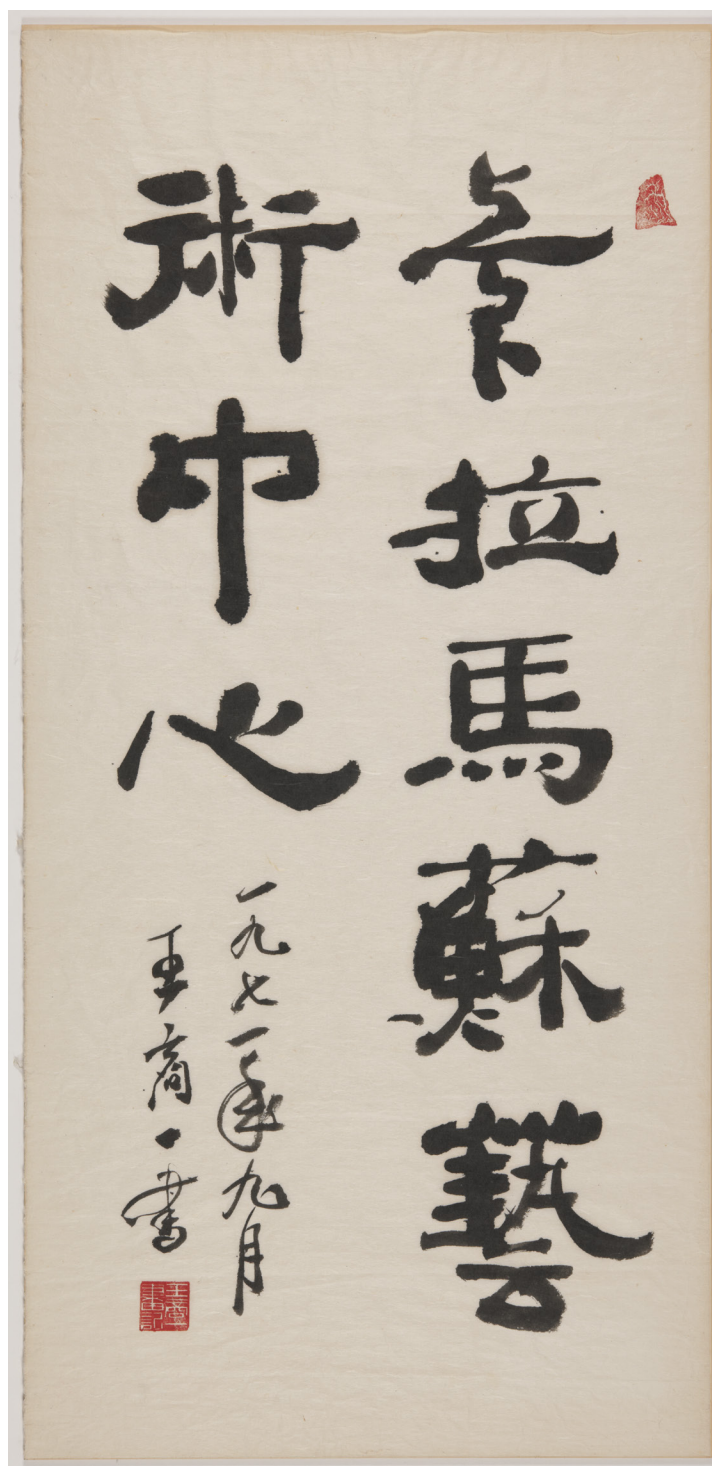 卡拉馬蘇藝
術中心
一九七一年九月
王商一書